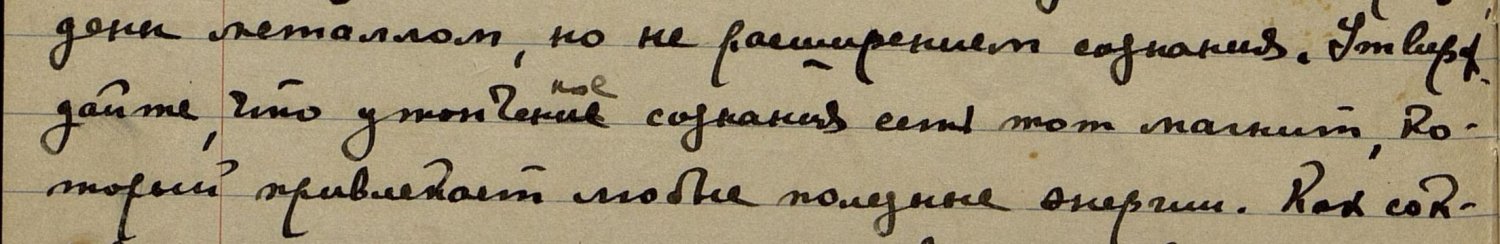 дены металлом, но не расширением сознания. Утверж-
ное
дайте, что утончение сознания есть тот магнит, ко-
торый привлекает любые полезные энергии. Как сок-